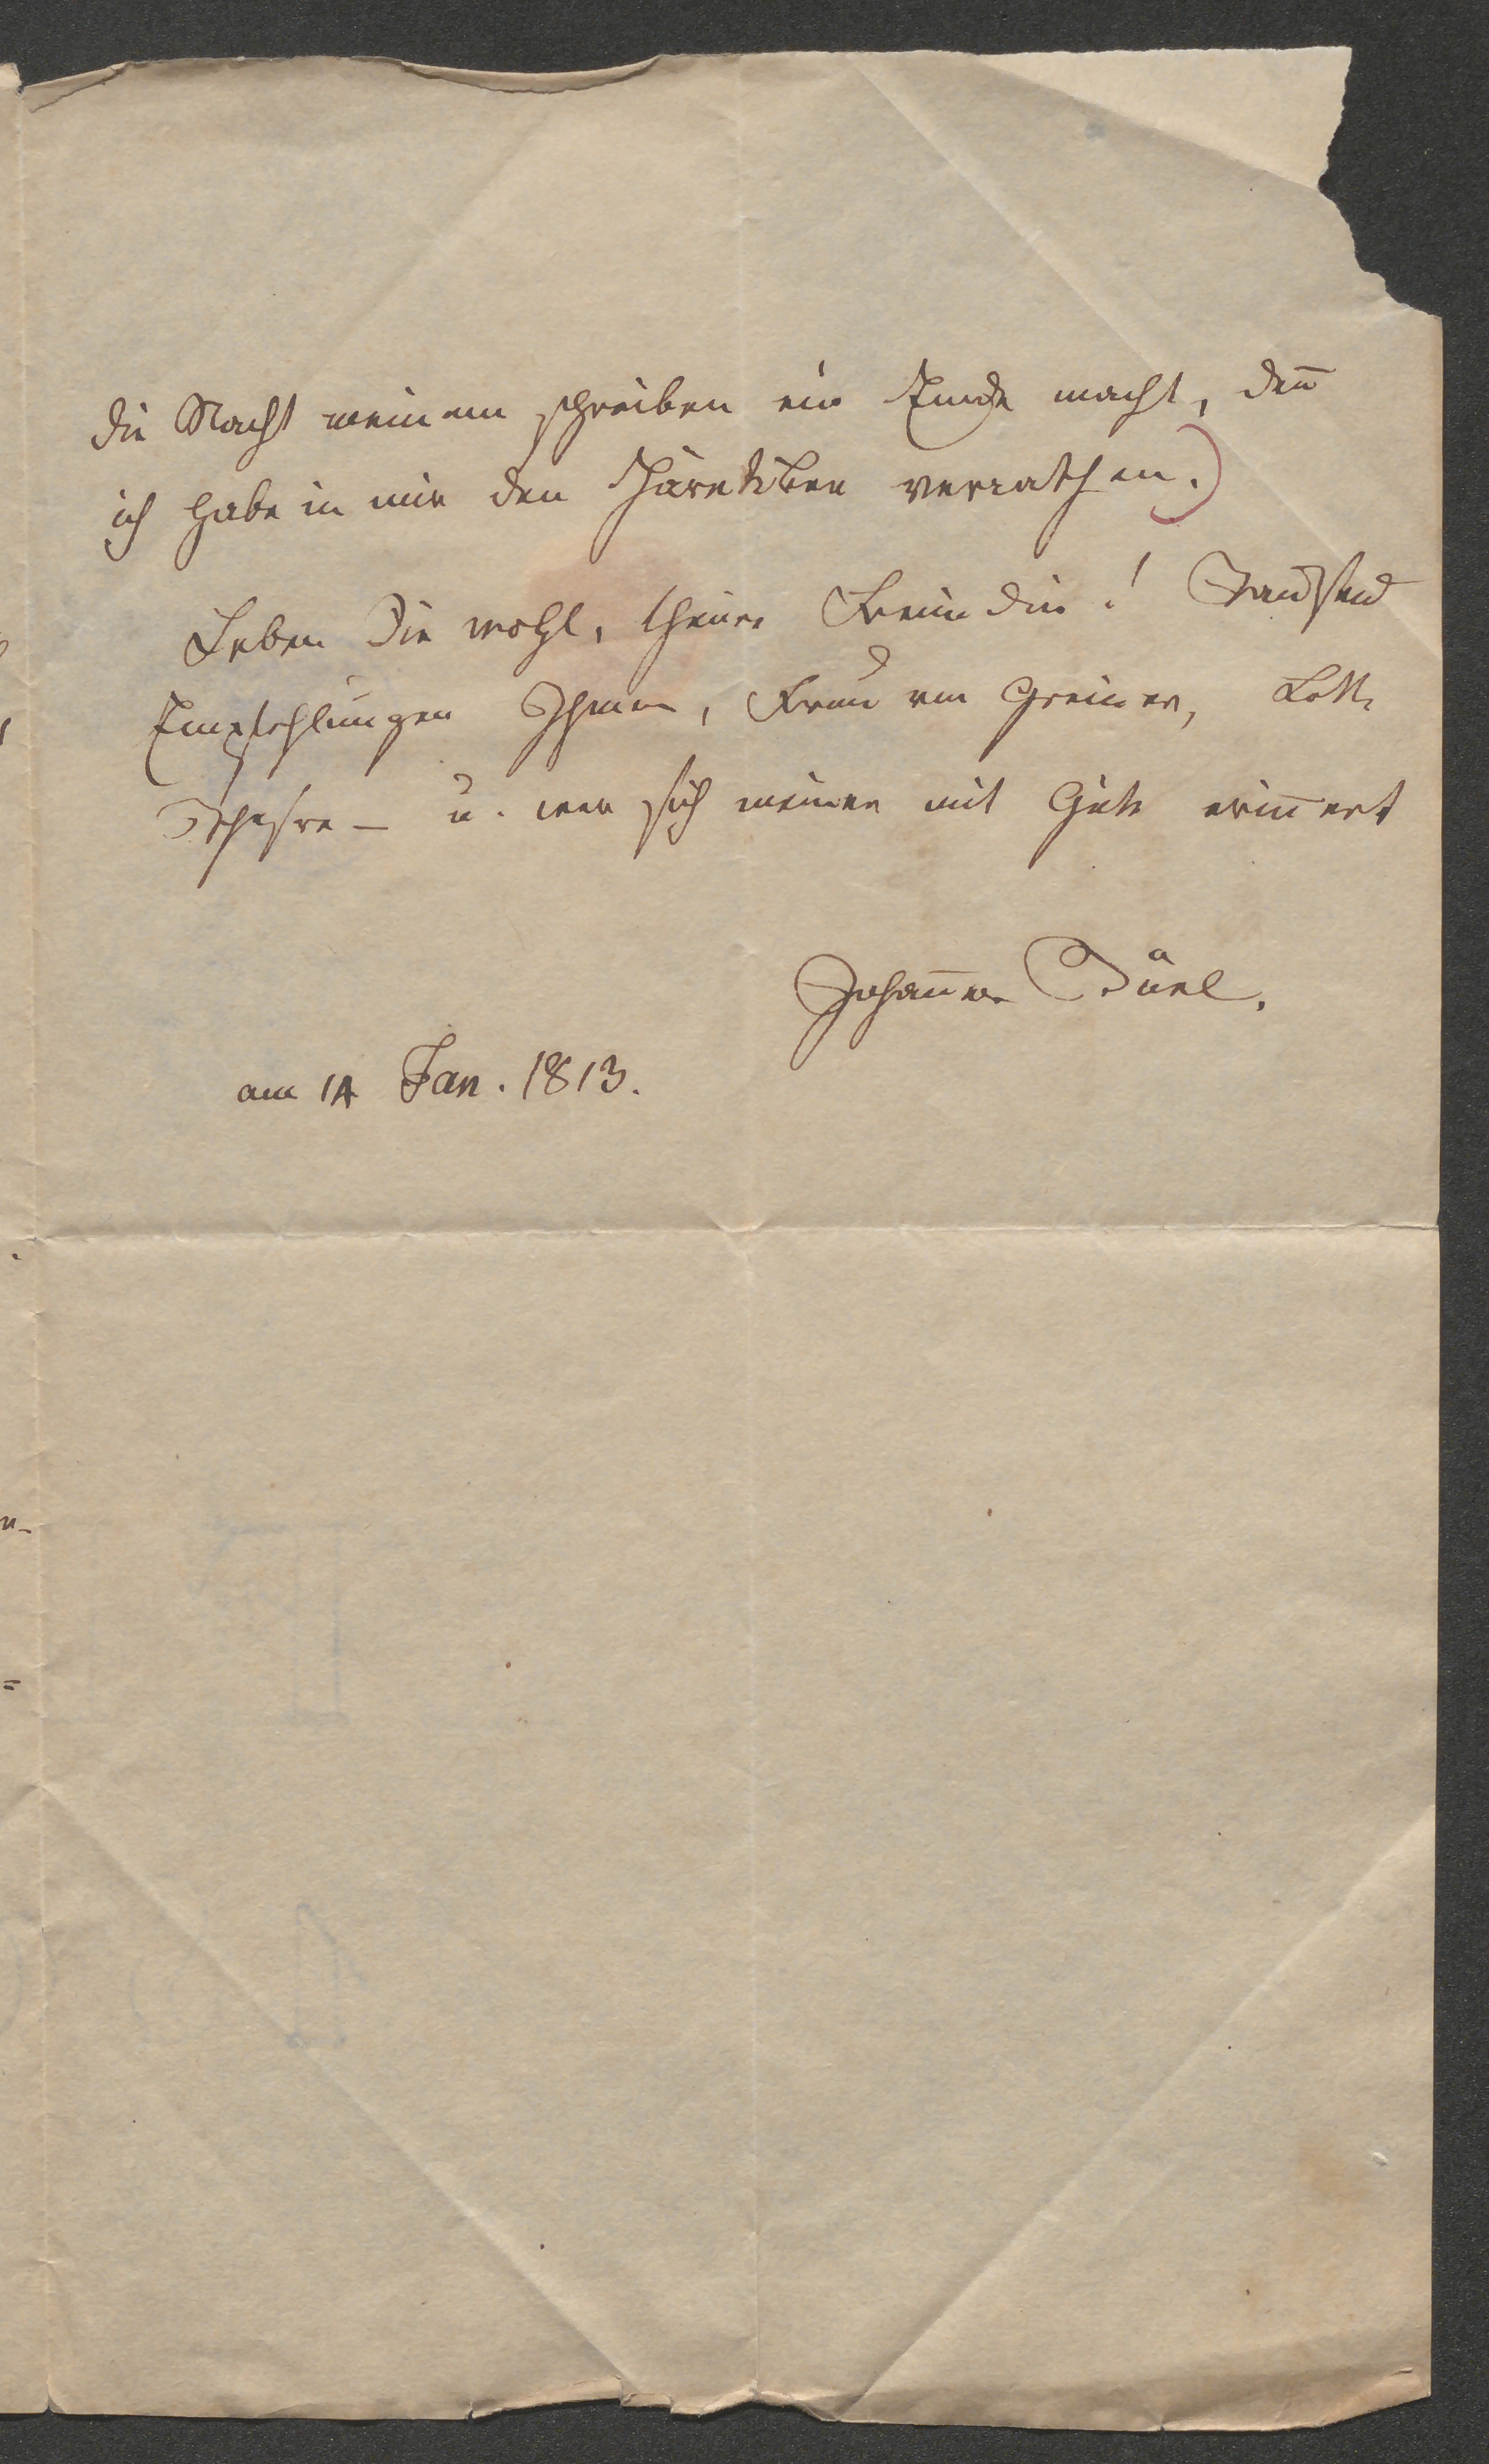 die Nacht meinem schreiben ein Ende macht, den̅
ich habe in mir den Häretiker verrathen.)
Leben Sie wohl, theure Freundin! Tausend
Empfehlungen Ihnen, Frau von Greiner, Lotte
u. wer sich meiner mit Güte erin̅ert
Johan̅es Büel.
am 14 Jan. 1813.